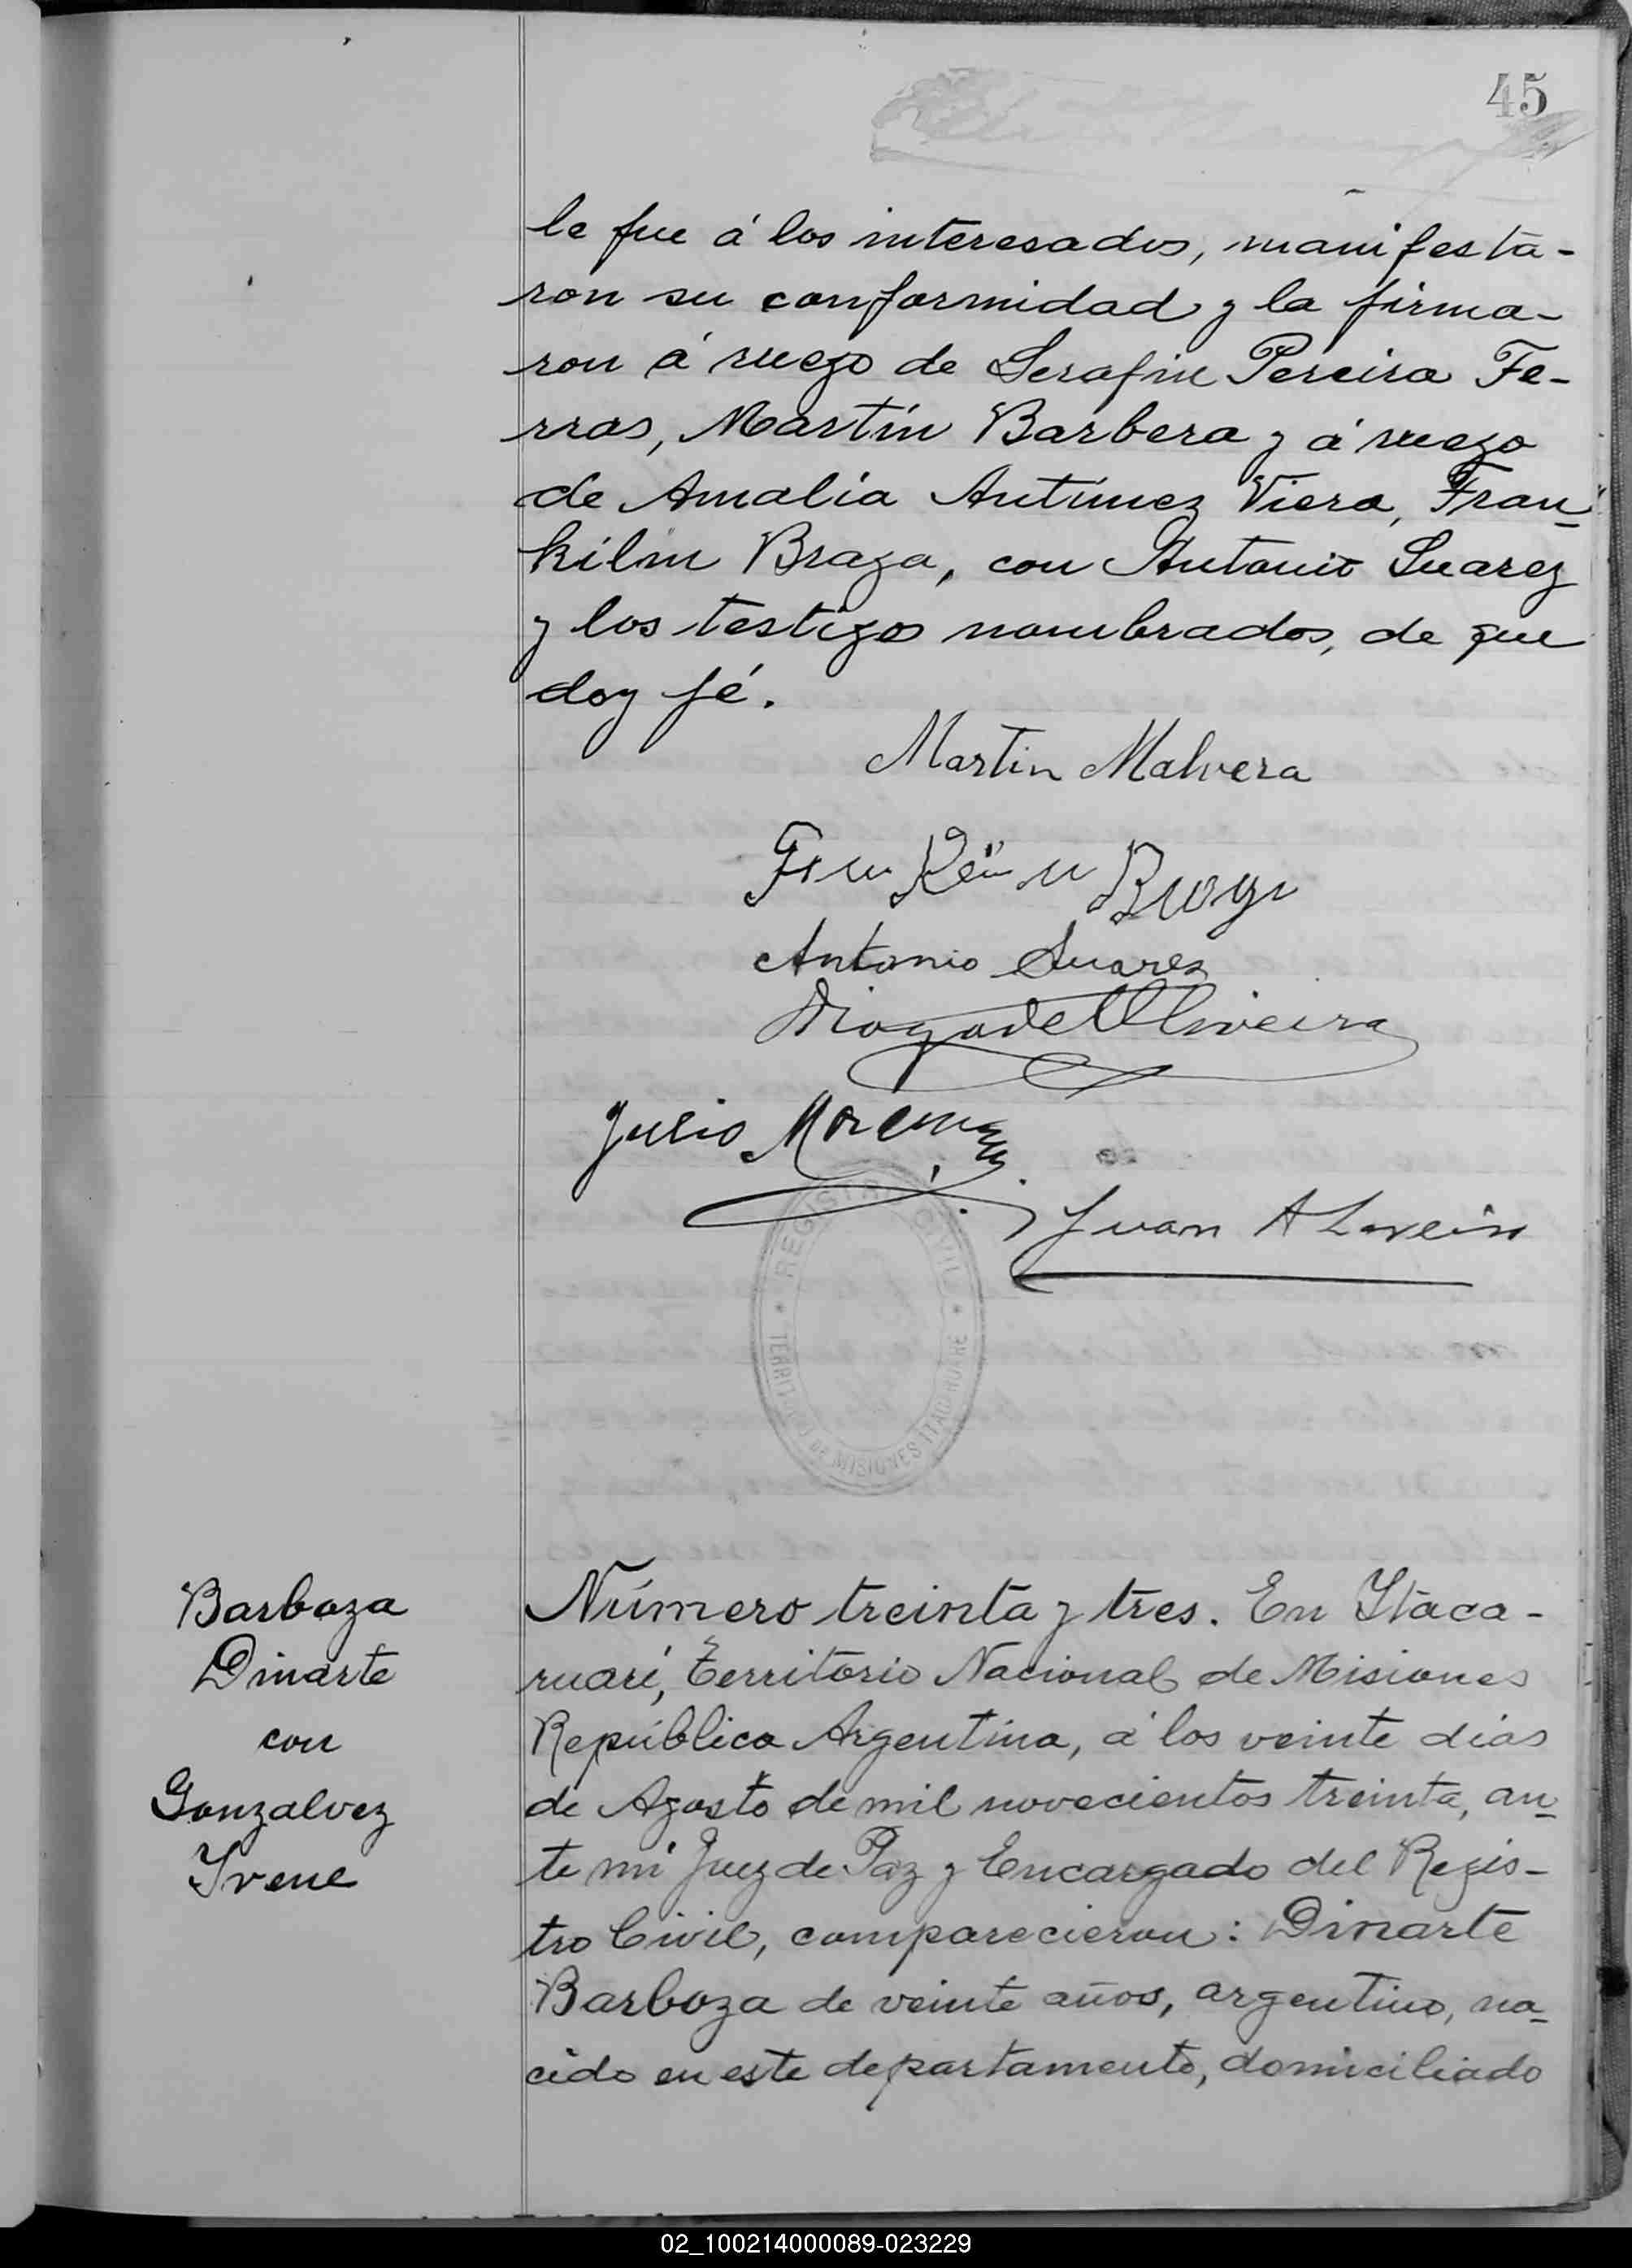 45
le fue á los interesados, manifesta-
ron su conformidad y la firma-
ron á ruego de Serafin Pereira Fe-
rras, Martín Barbera y á ruego
de Amalia Antúnez Viera, Fran-
kilin Braga, con Antonio Suarez
y los testigos nombrados, de que
doy fé.
Martin Malvera
Antonio Suarez
Diogo de Oliveira
Julio
Juan A
REGISTRO CIVIL
TERRITORIO DE MISIONES ITACARUARE
Barboza
Dinarte
con
Gonzalvez
Irene
Número treinta y tres. En Itaca-
ruaré, Territorio Nacional de Misiones
República Argentina, á los veinte dias
de Agosto de mil novecientos treinta, an-
te mi Juez de Paz y Encargado del Regis-
tro Civil, comparecieron: Dinarte
Barboza de veinte años, argentino, na-
cido en este departamento, domiciliado
02_100214000089-023229